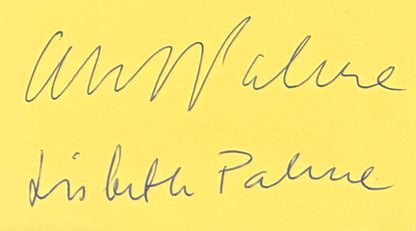 Olof Palme
Lisbeth Palme